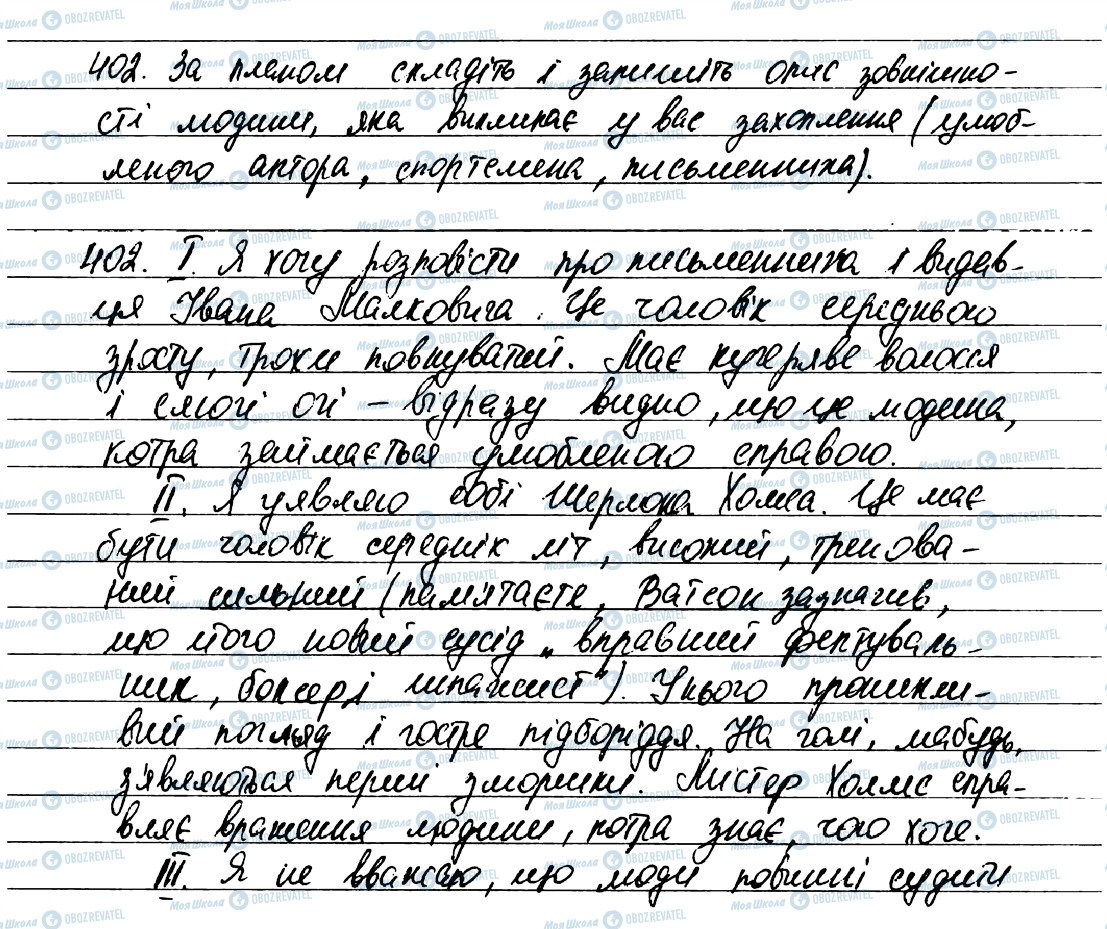 402. За планом складіть і запишіть опис зовнішно-
сті людини, яка викликає у вас захоплення (улюб-
леного актора, спортсмена, письменника).
402. I. Я хочу розповісти про письменника і видав-
ця Івана Малковича. Це чоловік середнього
зросту, трохи повнуватий. Має кучеряве волосся
і сяючі очі – відразу видно, що це людина,
котра займається улюбленою справою.
II. Я уявляю собі Шерлока Холмса. Це має
бути чоловік середніх літ, високий, тренова-
ний сильний (пам'ятаєте, Ватсон зазначив,
що його новий сусід „вправний фехтуваль-
ник, боксер і шпажист"). У нього проникли-
вий погляд і гостре підборіддя. На чолі, мабудь,
з'являються перші зморшки. Містер Холмс спра-
вляє враження людини, котра знає, чого хоче.
III. Я не вважаю, що люди повинні судити